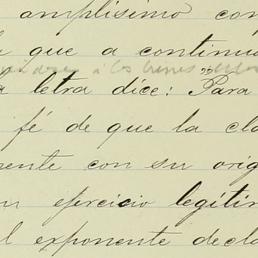 amplísimo con
que a continua
a letra dice: "Para
fé de que la cla
ente con su orig
un ejercicio legítim
l exponente decla